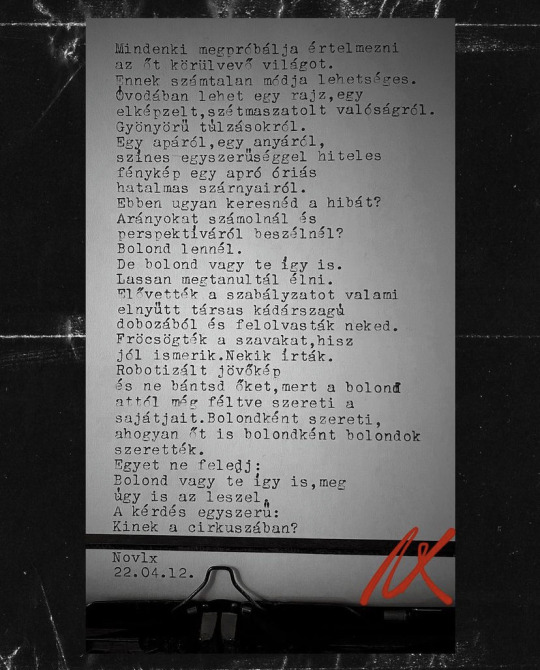 Mindenki megpróbálja értelmezni
az őt körülvevő világot.
Ennek számtalan módja lehetséges.
Óvodában lehet egy rajz,egy
elképzelt,szétmaszatolt valóságról.
Gyönyörű túlzásokról.
Egy apáról,egy anyáról,
színes egyszerűséggel hiteles
fénykép egy apró óriás
hatalmas szárnyairól.
Ebben ugyan keresnéd a hibát?
Arányokat számolnál és
perspektíváról beszélnél?
Bolond lennél.
De bolond vagy te így is.
Lassan megtanultál élni.
Elővették a szabályzatot valami
elnyűtt társas kádárszagú
dobozából és felolvasták neked.
Fröcsögték a szavakat,hisz
jól ismerik.Nekik írták.
Robotizált jövőkép
és ne bántsd őket,mert a bolond
attól még féltve szereti a
sajátjait.Bolondként szereti,
ahogyan őt is bolondként bolondok
szerették.
Egyet ne feledj:
Bolond vagy te így is,meg
úgy is az leszel.
A kérdés egyszerű:
Kinek a cirkuszában?
Novlx
22.04.12.